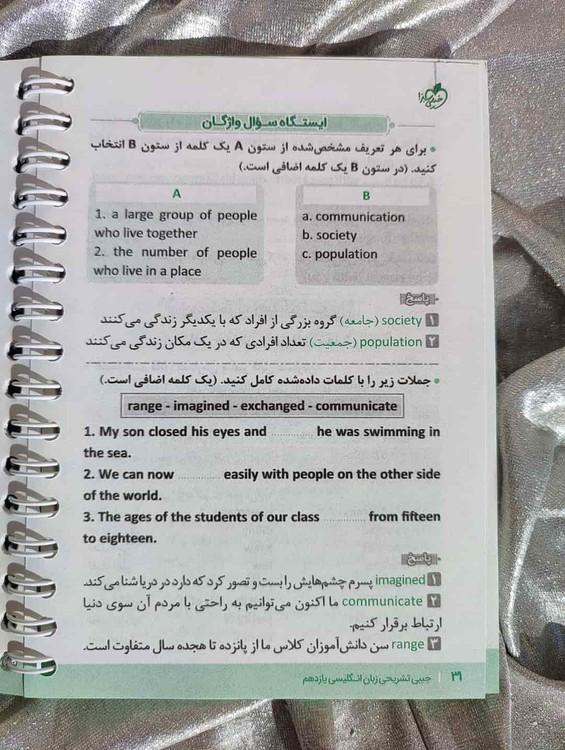 خیلی سبز
ایستگاه سؤال واژگان
• برای هر تعریف مشخص‌شده از ستون A یک کلمه از ستون B انتخاب
کنید. (در ستون B یک کلمه اضافی است.)
A
1. a large group of people
who live together
2. the number of people
who live in a place
B
a. communication
b. society
c. population
پاسخ
۱ society (جامعه) گروه بزرگی از افراد که با یکدیگر زندگی می‌کنند
۲ population (جمعیت) تعداد افرادی که در یک مکان زندگی می‌کنند
• جملات زیر را با کلمات داده‌شده کامل کنید. (یک کلمه اضافی است.)
range - imagined - exchanged - communicate
1. My son closed his eyes and ............ he was swimming in
the sea.
2. We can now ............ easily with people on the other side
of the world.
3. The ages of the students of our class ............ from fifteen
to eighteen.
پاسخ
۱ imagined پسرم چشم‌هایش را بست و تصور کرد که دارد در دریا شنا می‌کند.
۲ communicate ما اکنون می‌توانیم به راحتی با مردم آن سوی دنیا
ارتباط برقرار کنیم.
۳ range سن دانش‌آموزان کلاس ما از پانزده تا هجده سال متفاوت است.
۳۱ | جیبی تشریحی زبان انگلیسی یازدهم